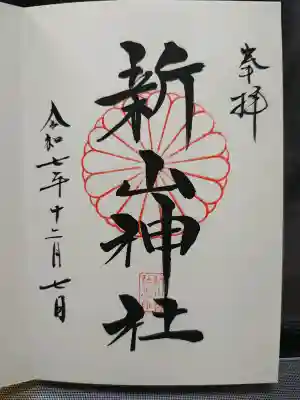 奉拝
新山神社
令和七年十二月七日